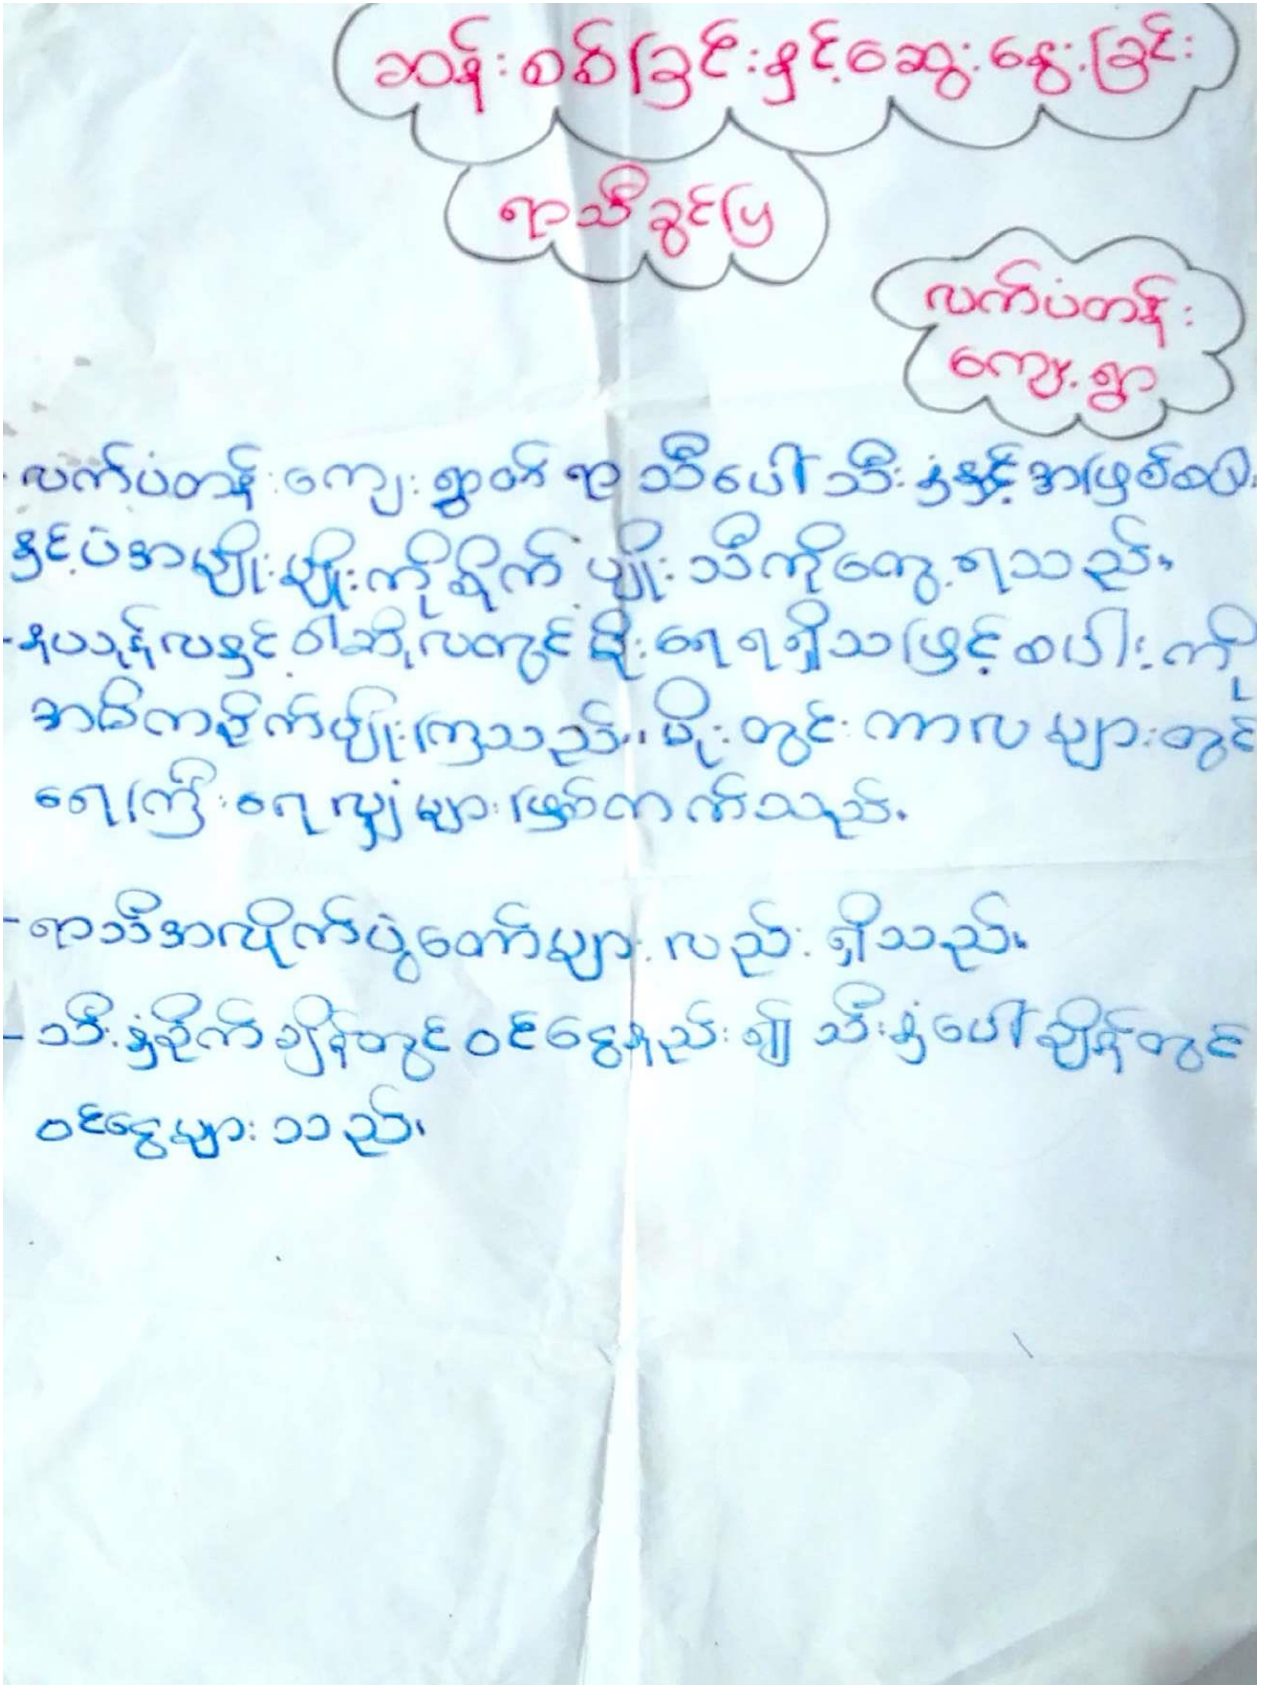 ဆန်းစစ်ခြင်းနှင့်ဆွေးနွေးခြင်း
ရာသီခွင်ပြ
လက်ပံတန်း
ကျေးရွာ
- လက်ပံတန်းကျေးရွာတွင် ရာသီပေါ်သီးနှံနှင့် အဖြစ်စပါး
နှင့်ပဲအမျိုးမျိုးကိုစိုက်ပျိုးသီကိုတွေ့ရသည်။
- နယုန်လနှင့်ဝါဆိုလတွင်မိုးရေရရှိသဖြင့်စပါးကို
အဓိကစိုက်ပျိုးကြသည်။ မိုးတွင်းကာလများတွင်
ရေကြီးရေလျှံများဖြစ်တက်သည်။
- ရာသီအလိုက်ပွဲတော်များလည်းရှိသည်။
- သီးနှံစိုက်ချိန်တွင်ဝင်ငွေနည်း၍ သီးနှံပေါ်ချိန်တွင်
ဝင်ငွေများသည်။